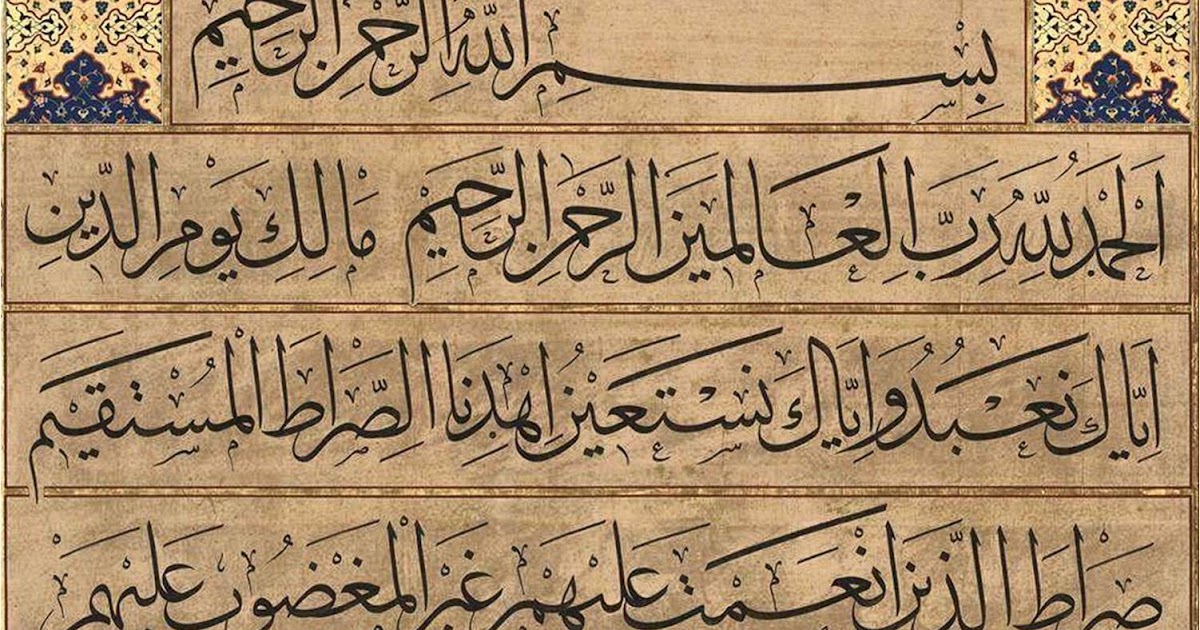 بِسْمِ اللّٰهِ الرَّحْمٰنِ الرَّحِيْمِ
اَلْحَمْدُ لِلّٰهِ رَبِّ الْعَالَمِيْنَ الرَّحْمٰنِ الرَّحِيْمِ مَالِكِ يَوْمِ الدِّيْنِ
اِيَّاكَ نَعْبُدُ وَاِيَّاكَ نَسْتَعِيْنُ اِهْدِنَا الصِّرَاطَ الْمُسْتَقِيْمَ
صِرَاطَ الَّذِيْنَ اَنْعَمْتَ عَلَيْهِمْ غَيْرِ الْمَغْضُوْبِ عَلَيْهِمْ